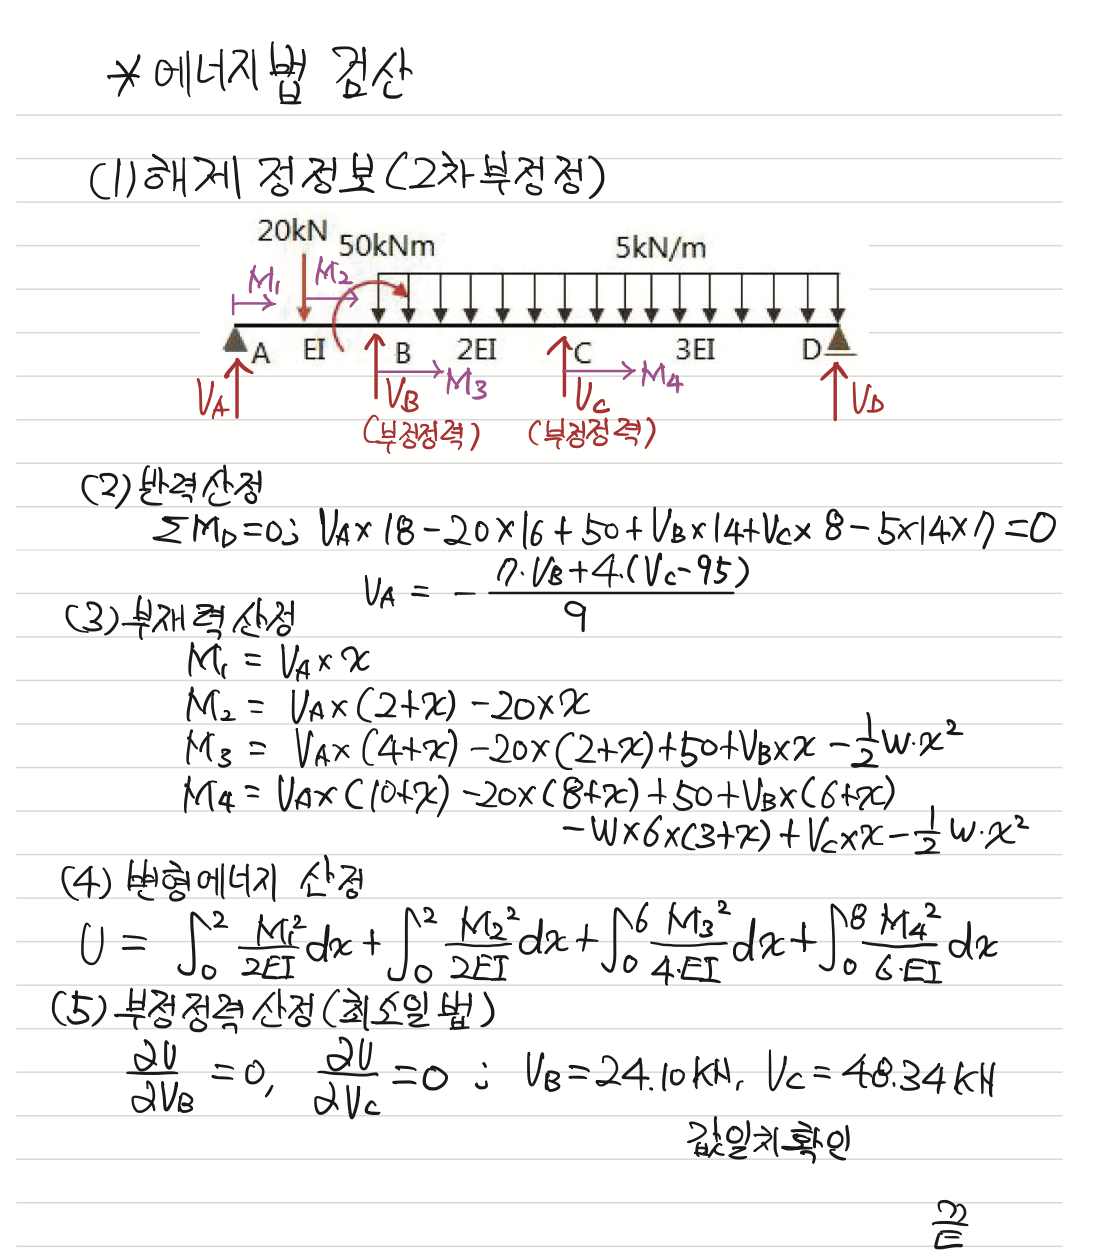 * 에너지법 검산
(1) 해제 정정보 (2차 부정정)
20kN 50kNm 5kN/m
M₁ M₂
A EI B 2EI C 3EI D
V_A V_B M₃ V_C M₄ V_D
(부정정력) (부정정력)
(2) 반력산정
ΣM_D=0; V_A×18-20×16+50+V_B×14+V_C×8-5×14×7=0
V_A = -\frac{7·V_B+4·(V_C-95)}{9}
(3) 부재력 산정
M₁ = V_A×x
M₂ = V_A×(2+x) -20×x
M₃ = V_A×(4+x) -20×(2+x)+50+V_B×x -\frac{1}{2}W·x²
M₄ = V_A×(10+x) -20×(8+x)+50+V_B×(6+x)
-W×6×(3+x)+V_C×x-\frac{1}{2}W·x²
(4) 변형에너지 산정
U = ∫₀² \frac{M₁²}{2EI}dx+∫₀² \frac{M₂²}{2EI}dx+∫₀⁶ \frac{M₃²}{4·EI}dx+∫₀⁸ \frac{M₄²}{6·EI}dx
(5) 부정정력 산정 (최소일법)
\frac{∂U}{∂V_B} = 0, \frac{∂U}{∂V_C} = 0 ; V_B=24.10kN, V_C=48.34kN
값일치확인
끝